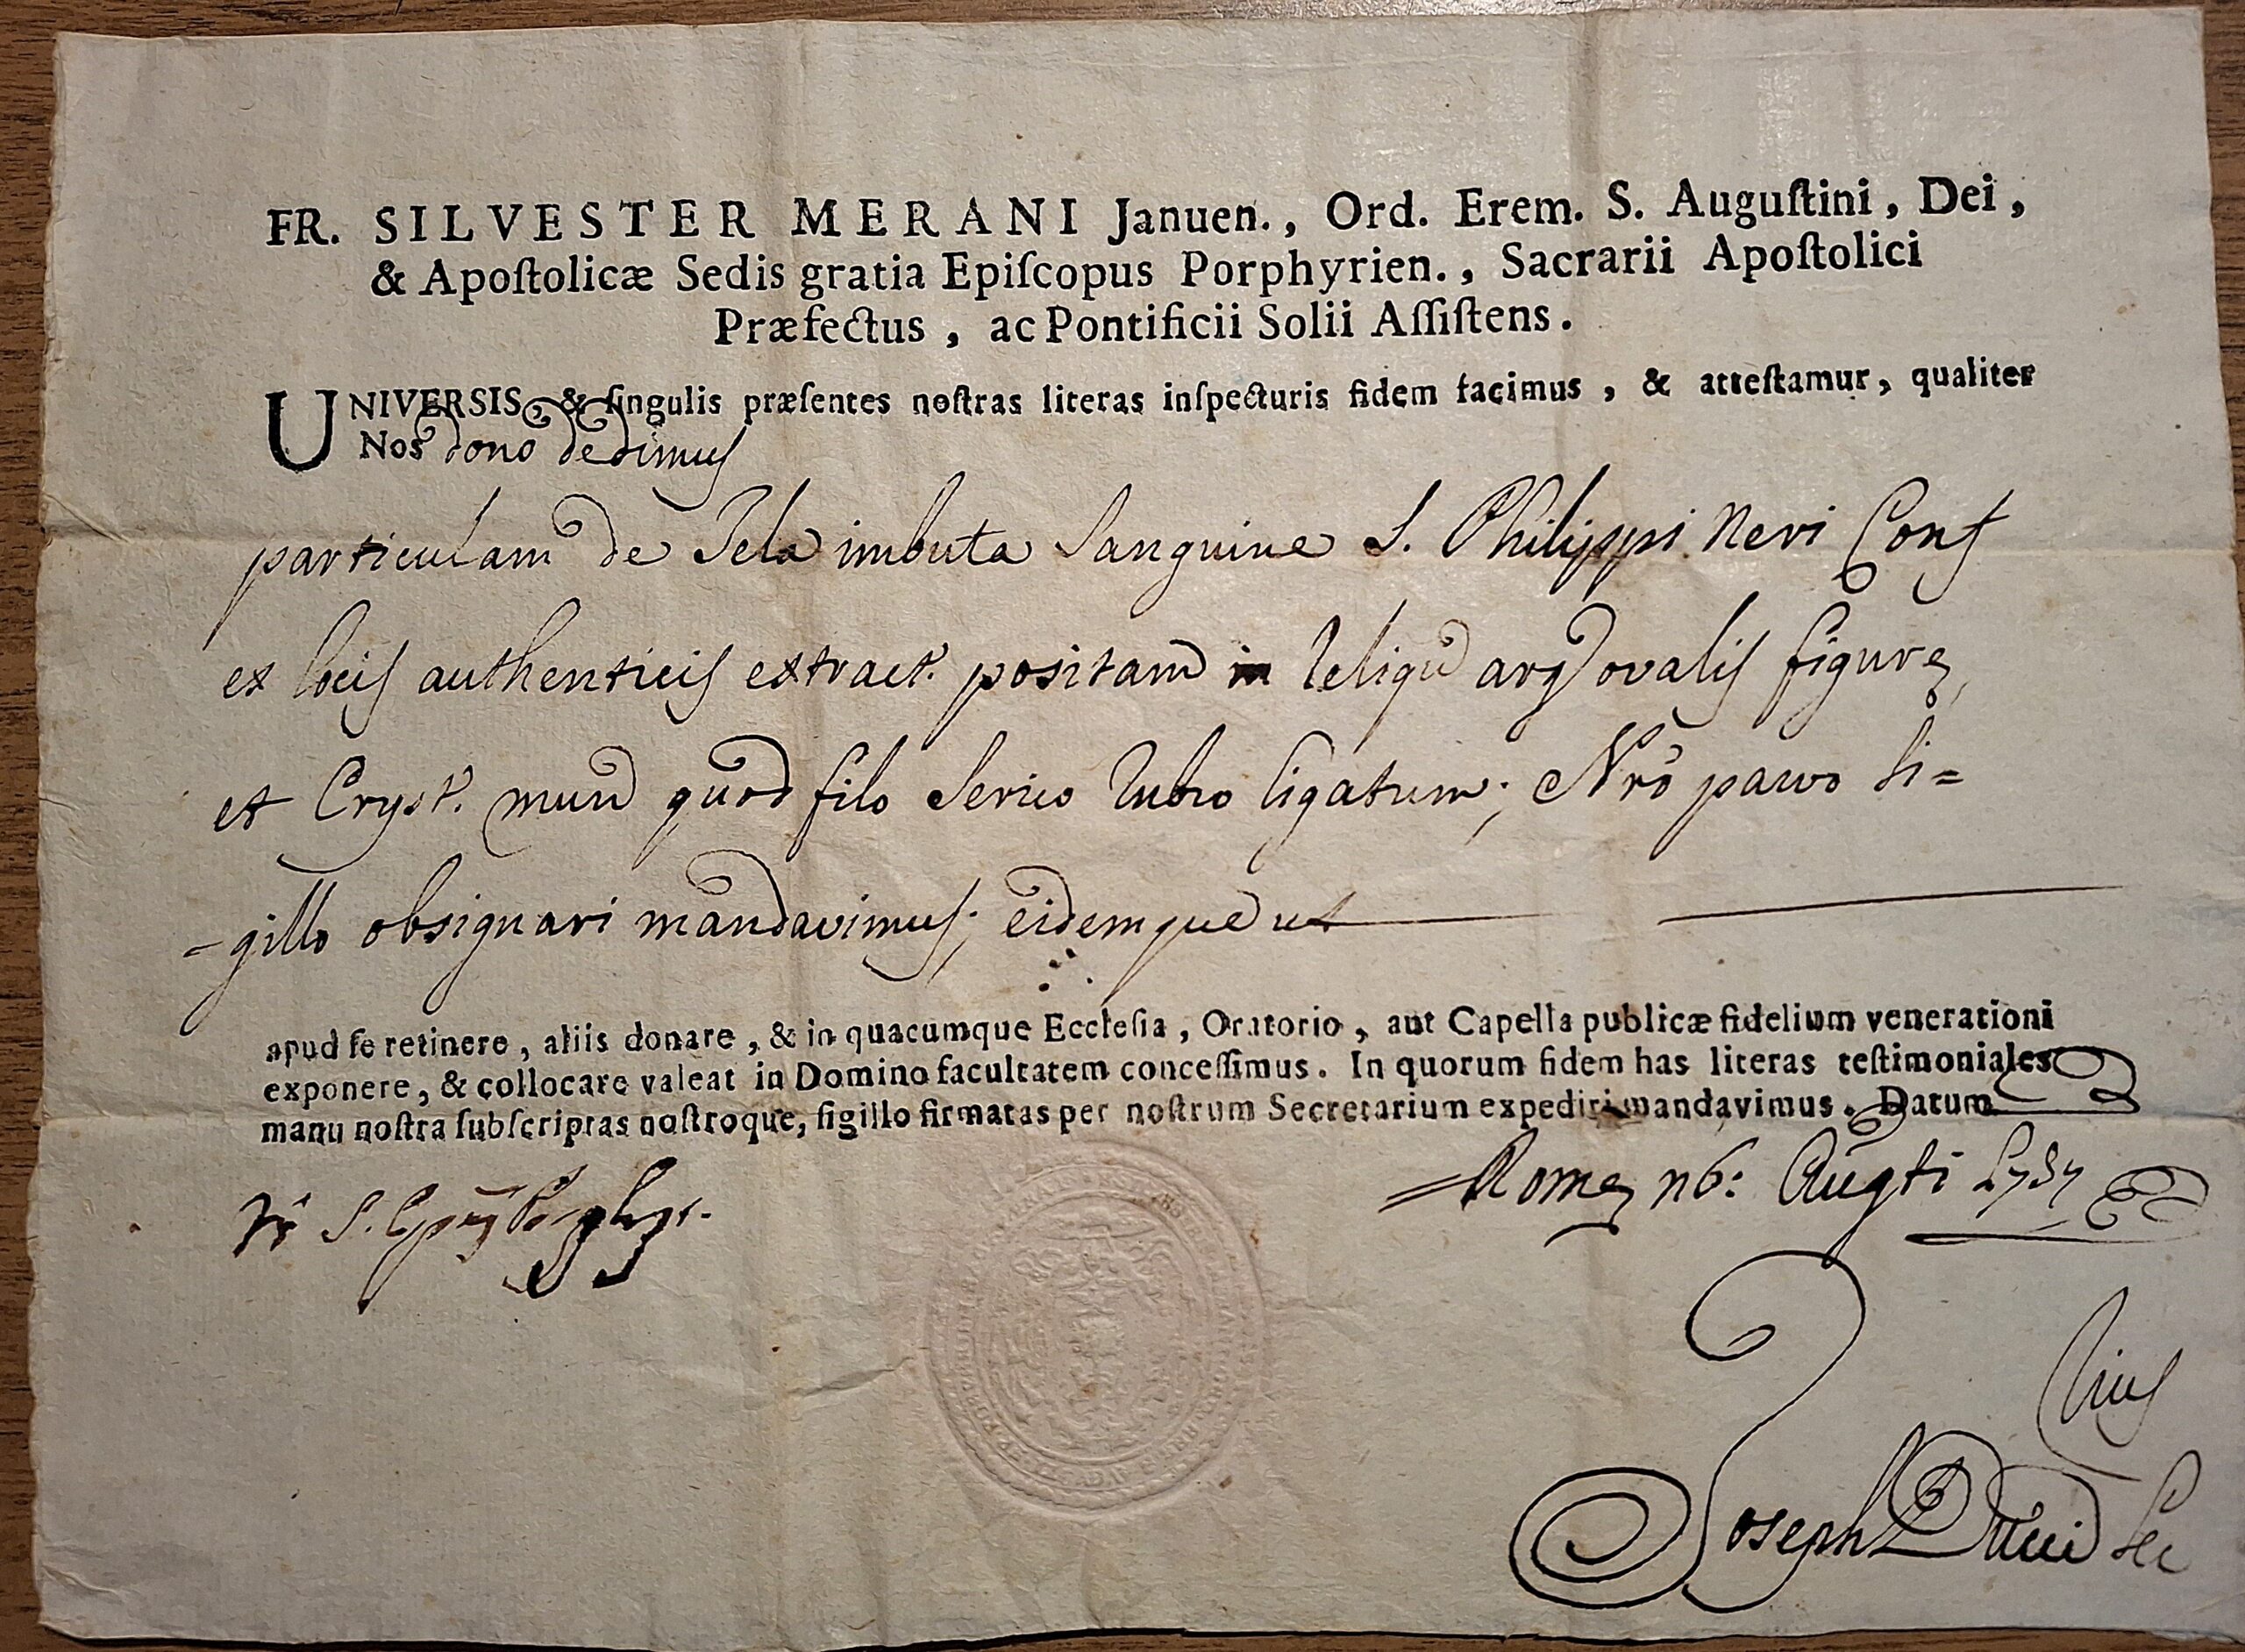 FR. SILVESTER MERANI Januen., Ord. Erem. S. Auguſtini, Dei,
& Apoſtolicæ Sedis gratia Epiſcopus Porphyrien., Sacrarii Apoſtolici
Præfectus, ac Pontificii Solii Aſſiſtens.
UNIVERSIS, & ſingulis præſentes noſtras literas inſpecturis fidem facimus, & atteſtamur, qualiter
Nos dono dedimus
particulam de Tela imbuta Sanguine S. Philippi Neri Conf
ex locis authenticis extract. positam in Reliqu arg ovalis figuræ
et Cryst. mun quod filo serico rubro ligatum; Nrõ parvo si=
=gillo obsignari mandavimus; eidemque ut
apud ſe retinere, aliis donare, & in quacumque Eccleſia, Oratorio, aut Capella publicæ fidelium venerationi
exponere, & collocare valeat in Domino facultatem conceſſimus. In quorum fidem has literas teſtimoniales
manu noſtra ſubſcriptas noſtroque, ſigillo firmatas per noſtrum Secretarium expediri mandavimus. Datum
Romæ 26: Augti 1757
Joseph Sec